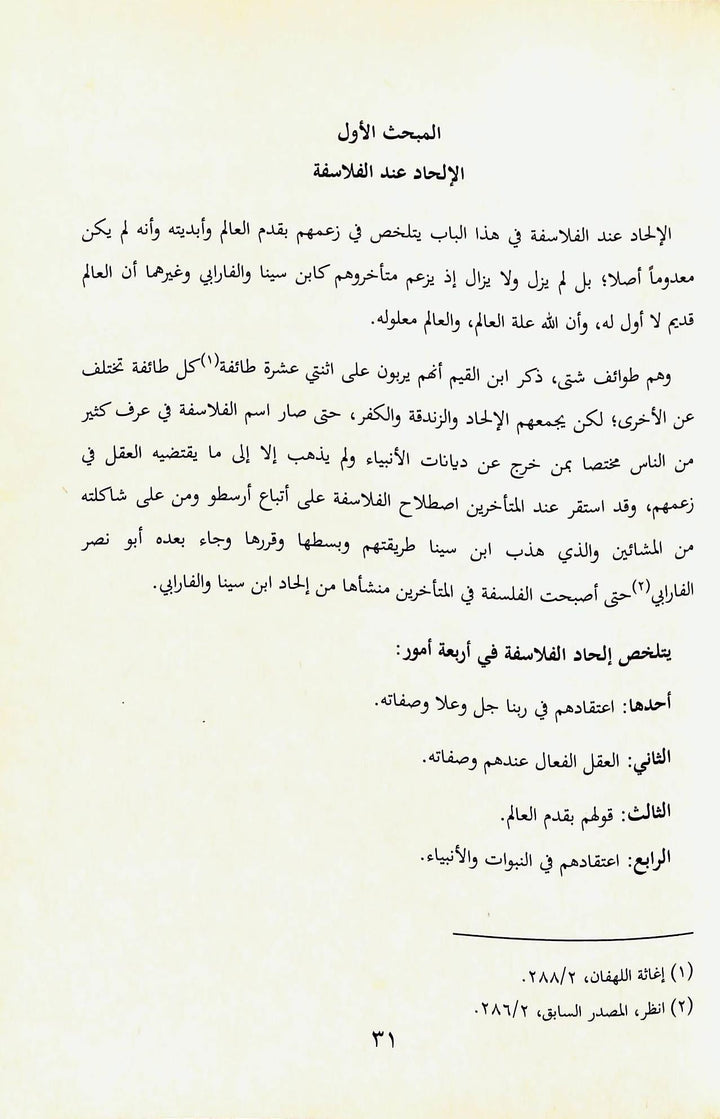 المبحث الأول
الإلحاد عند الفلاسفة
الإلحاد عند الفلاسفة في هذا الباب يتلخص في زعمهم بقدم العالم وأبديته وأنه لم يكن
معدوماً أصلا؛ بل لم يزل ولا يزال إذ يزعم متأخروهم كابن سينا والفارابي وغيرهما أن العالم
قديم لا أول له، وأن الله علة العالم، والعالم معلوله.
وهم طوائف شتى، ذكر ابن القيم أنهم يربون على اثنتي عشرة طائفة(١)كل طائفة تختلف
عن الأخرى؛ لكن يجمعهم الإلحاد والزندقة والكفر، حتى صار اسم الفلاسفة في عرف كثير
من الناس مختصا بمن خرج عن ديانات الأنبياء ولم يذهب إلا إلى ما يقتضيه العقل في
زعمهم، وقد استقر عند المتأخرين اصطلاح الفلاسفة على أتباع أرسطو ومن على شاكلته
من المشائين والذي هذب ابن سينا طريقتهم وبسطها وقررها وجاء بعده أبو نصر
الفارابي(٢)حتى أصبحت الفلسفة في المتأخرين منشأها من إلحاد ابن سينا والفارابي.
يتلخص إلحاد الفلاسفة في أربعة أمور:
أحدها: اعتقادهم في ربنا جل وعلا وصفاته.
الثاني: العقل الفعال عندهم وصفاته.
الثالث: قولهم بقدم العالم.
الرابع: اعتقادهم في النبوات والأنبياء.
(١) إغاثة اللهفان، ٢٨٨/٢.
(٢) انظر، المصدر السابق، ٢٨٦/٢.
٣١